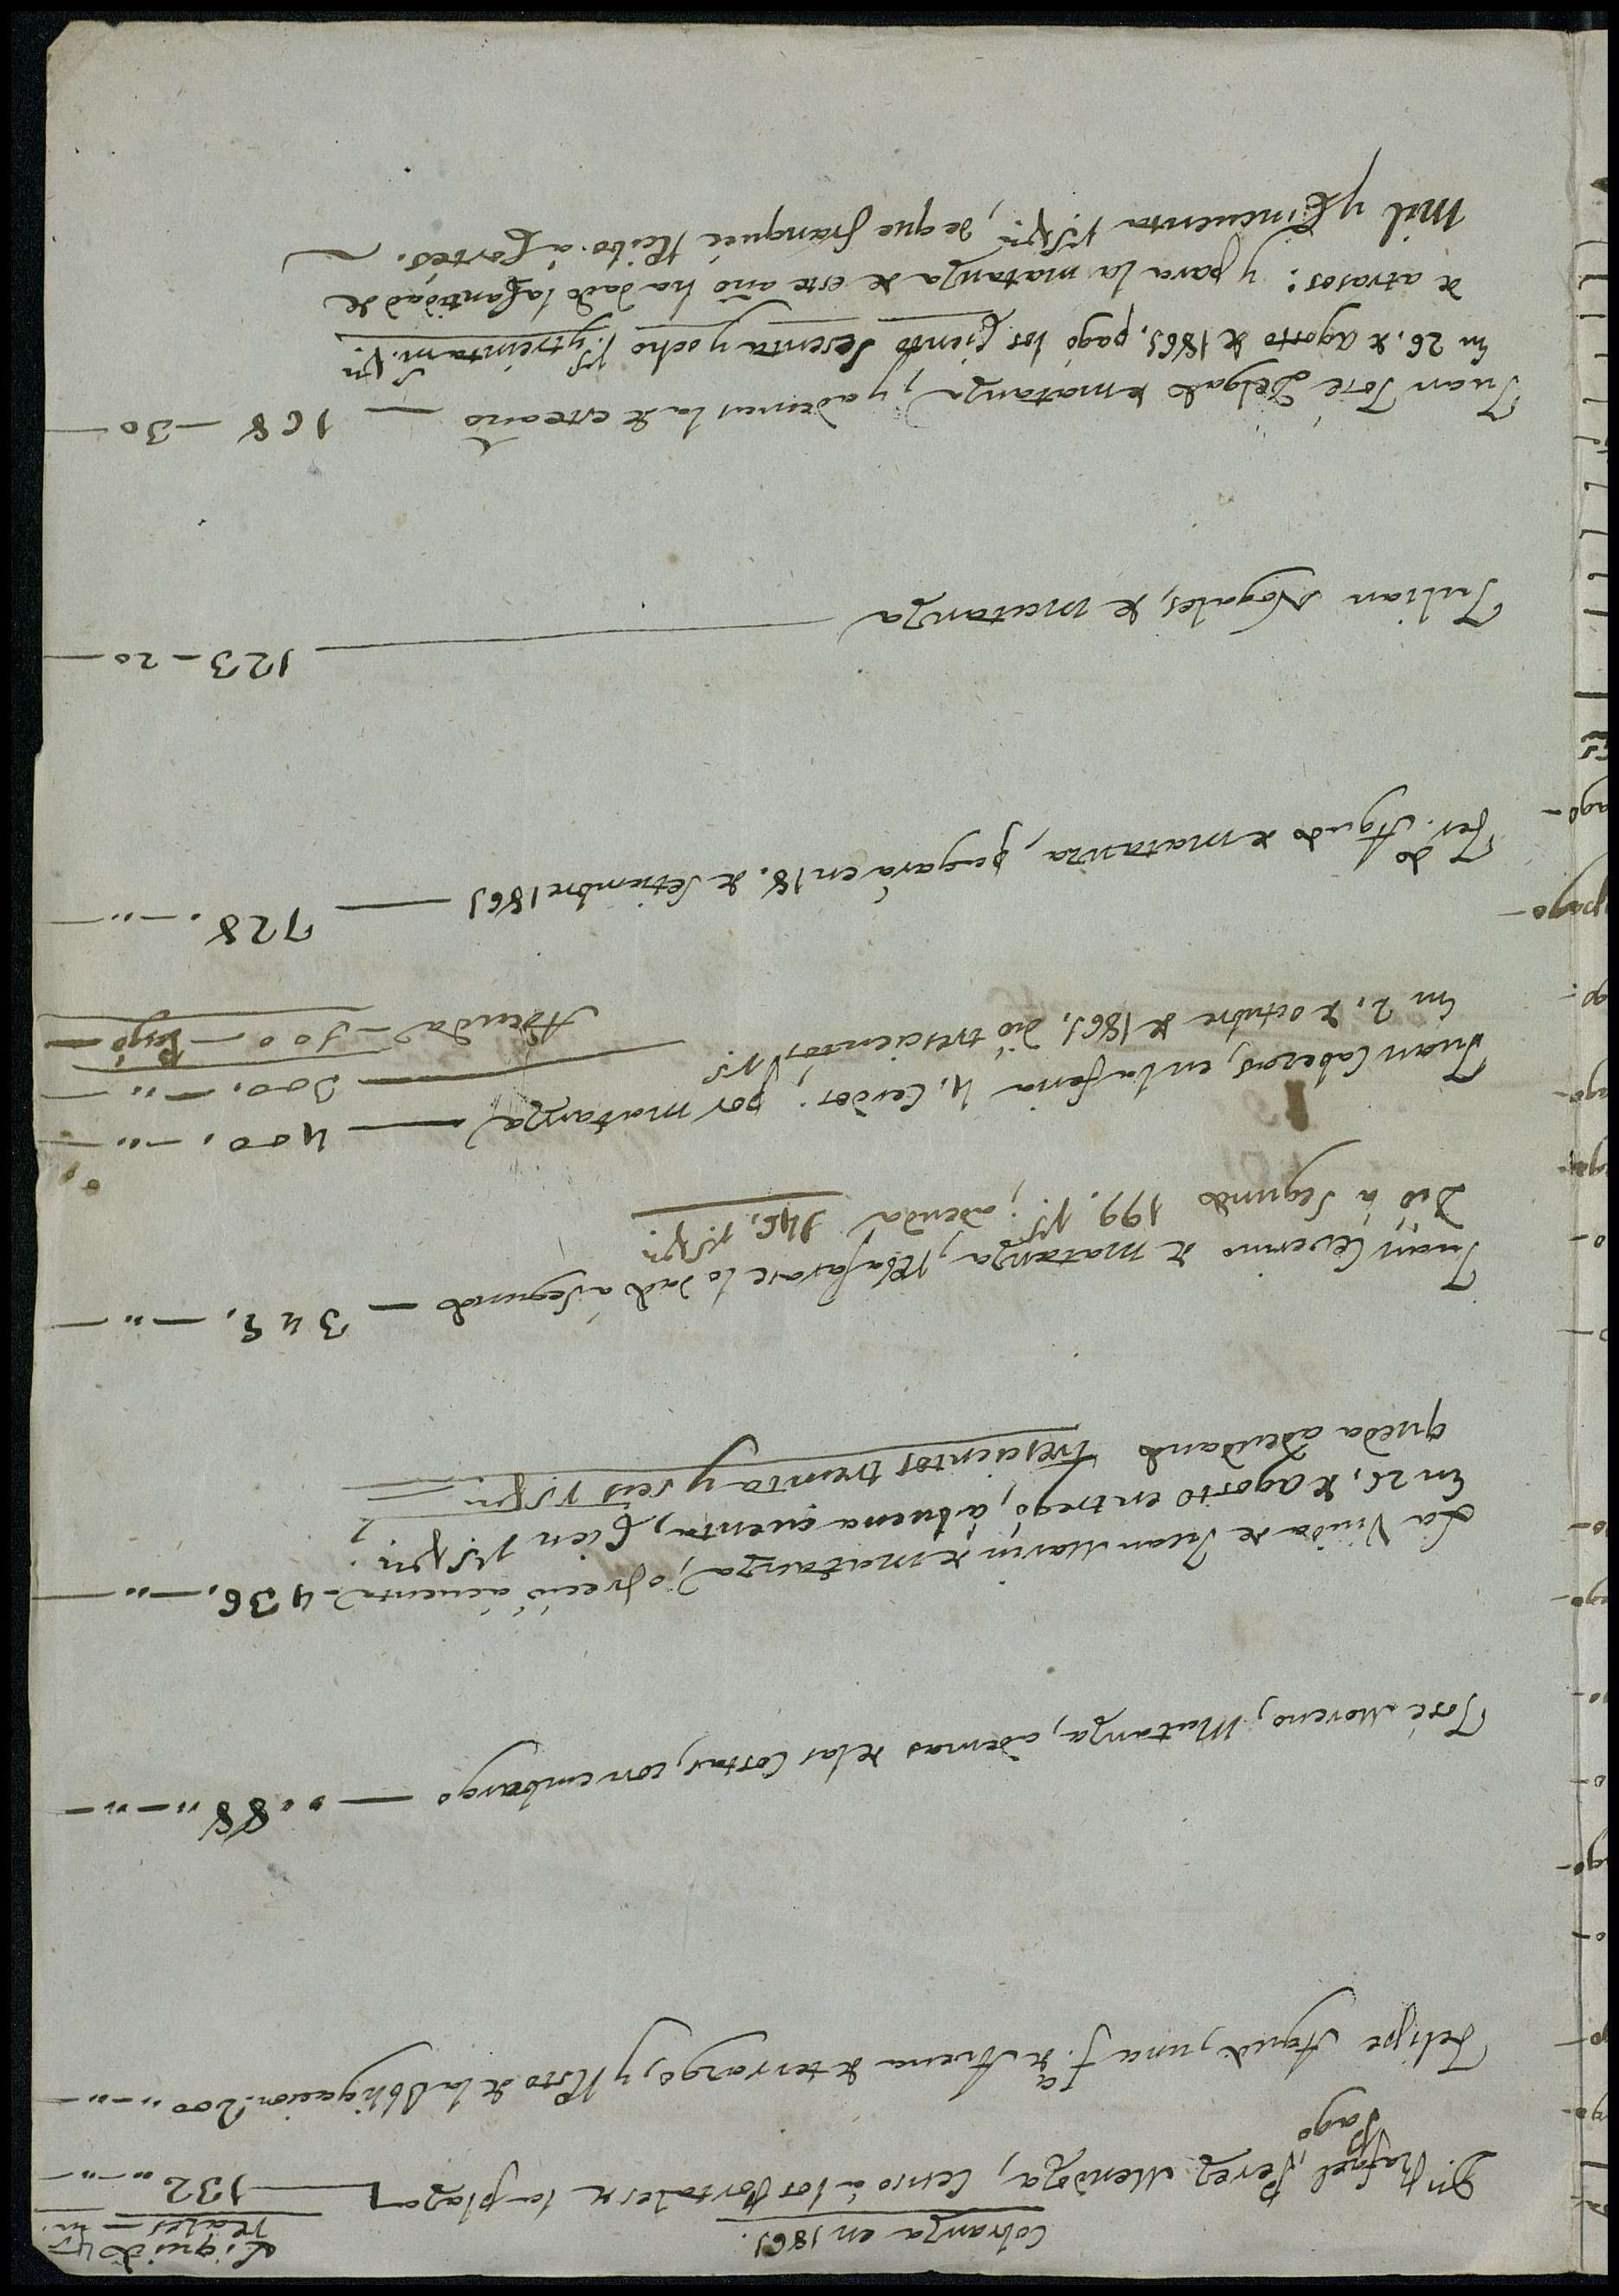 Cobranza en 1861.
Liquido
reales — m.
Dn. Rafael Perez Mendoza, Censo á los Portales de la plaza — 132 „—„—
Pagó
Felipe Agudo, una f.ª de Avena de terrazgo, y Resto de la Obligacion. 200„—„—
José Moreno, Matanza, ademas de las Costas, con embargo — „88„—„—
La Viuda de Juan Marin de matanza, ofreció á cuenta — 436„—„—
En 26, de agosto entregó, á buena cuenta, Cien rs. vn.
queda adeudando trescientos treinta y seis rs. vn.
Juan Ceverino de matanza, Rebajarse lo dado á Segundo — 345,—„—
Dió á Segundo 199. rs.; adeuda 146, rs. vn.
Juan Caberas, en la feria 4. Cerdos: por matanza — 400,—„—
En 2, de octubre de 1861, dió trescientos, rs. — 300,—„—
Adeuda — 100 — Pagó —
Fer.do Agudo de matanza, pagará en 18. de Setiembre 1861 — 728,—„—
Julian Nogales, de matanza — 123 — 20 —
Juan José Delgado de matanza, y ademas la de este año — 168 — 30 —
En 26. de agosto de 1861, pagó los Ciento Sesenta y ocho rs. y treinta m. vn.
de atrasos: y para la matanza de este año ha dado la Cantidad de
mil y Cincuenta rs. vn., de que franqueé Recibo á Cortés.